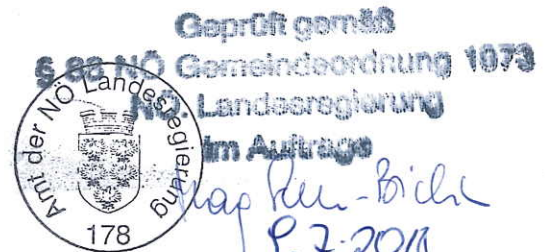 Geprüft gemäß
§ 88 NÖ Gemeindeordnung 1973
NÖ. Landesregierung
Im Auftrage
Amt der NÖ Landesregierung
178